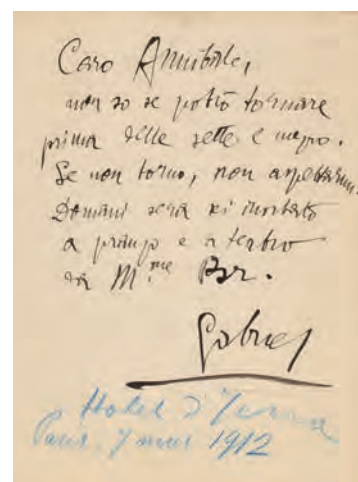 Caro Annibale,
non so se potrò tornare
prima delle sette e mezzo.
Se non torno, non aspettarmi.
Domani sera sei invitato
a pranzo e a teatro
da M.me
Gabriel
Hotel d'Iena
Paris, 7 1912